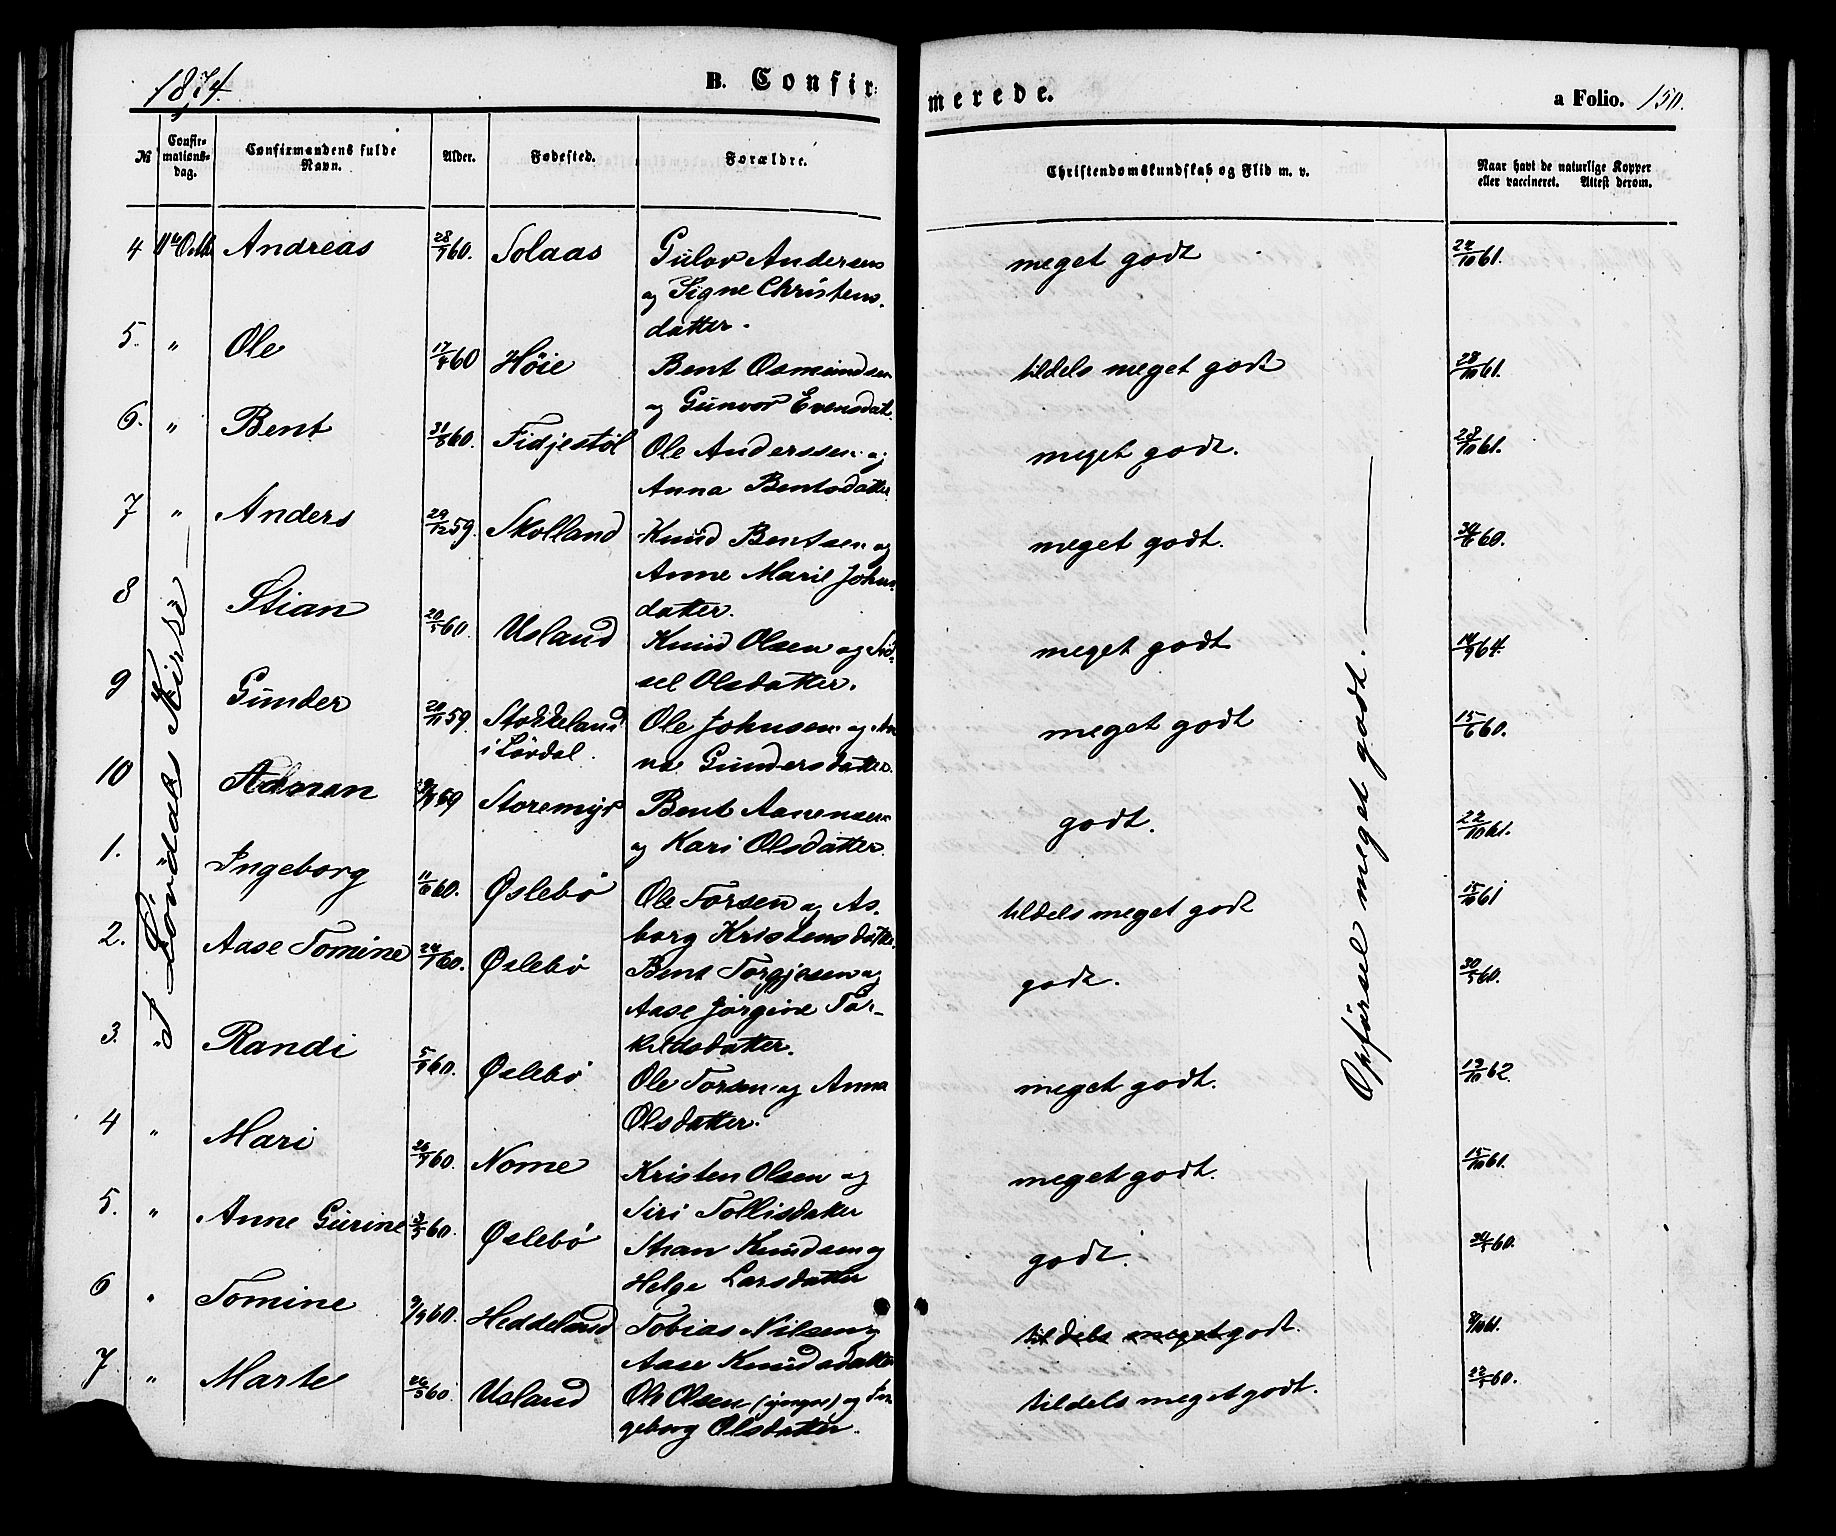 1874.
B. Confir-
merede.
a Folio. 150.
№
Confir-
mations-
dag.
Confirmandens fulde
Navn.
Alder.
Fødested.
Forældre.
Christendomskundskab og Flid m. v.
Naar havt de naturlige Kopper
eller vaccineret. Attest derom.
I Løvdals Kirke —
Opførsel meget godt. —
4 11te Octb Andreas 28/7 60. Solaas Gulov Andersen meget godt 22/10 61.
og Signe Christens-
datter.
5. " Ole 17/4 60 Høie Bent Osmundsen tildels meget godt 28/10 61.
og Gunvor Evensdat.
6. " Bent 31/8 60. Fidjestøl Ole Anderssen og meget godt. 28/10 61.
Anna Bentsdatter
7 " Anders 29/12 59. Skolland Knud Bentsen og meget godt. 30/6 60.
Anne Marie Johns-
datter.
8 Stian 20/5 60. Usland Knud Olsen og Sid- meget godt 14/9 64.
sel Olsdatter.
9 Gunder 20/11 59. Stokkeland Ole Johnsen og An- meget godt 15/6 60.
i Lovdal na Gundersdatter.
10 Adnan 59 Storemyr Bent Aanensen godt. 22/10 61.
og Kari Olsdatter
1. Ingeborg 11/6 60. Øslebø Ole Torsen og As- tildels meget godt 15/10 61
borg Kristensdatter.
2. Aase Tomine 24/1 60. Øslebø Bent Torgjesen og godt. 30/5 60.
Aase Jørgine Tor-
kildsdatter.
3. " Randi 5/9 60. Øslebø Ole Torsen og Anna meget godt. 19/10 62.
Olsdatter.
4 " Mari 26/9 60. Nome Kristen Olsen og meget godt. 15/10 61.
Siri Tollisdatter
5. " Anne Gurine 3/5 60. Øslebø Stian Knudsen og godt. 30/5 60.
Helge Larsdatter
6 " Tomine 9/9 60. Heddeland Tobias Nilsen og tildels meget godt. 8/10 61.
Aase Knudsdatter
7. " Marte 26/5 60. Usland Ole Olsen (yngre) og In- tildels meget godt. 60.
geborg Olsdatter.